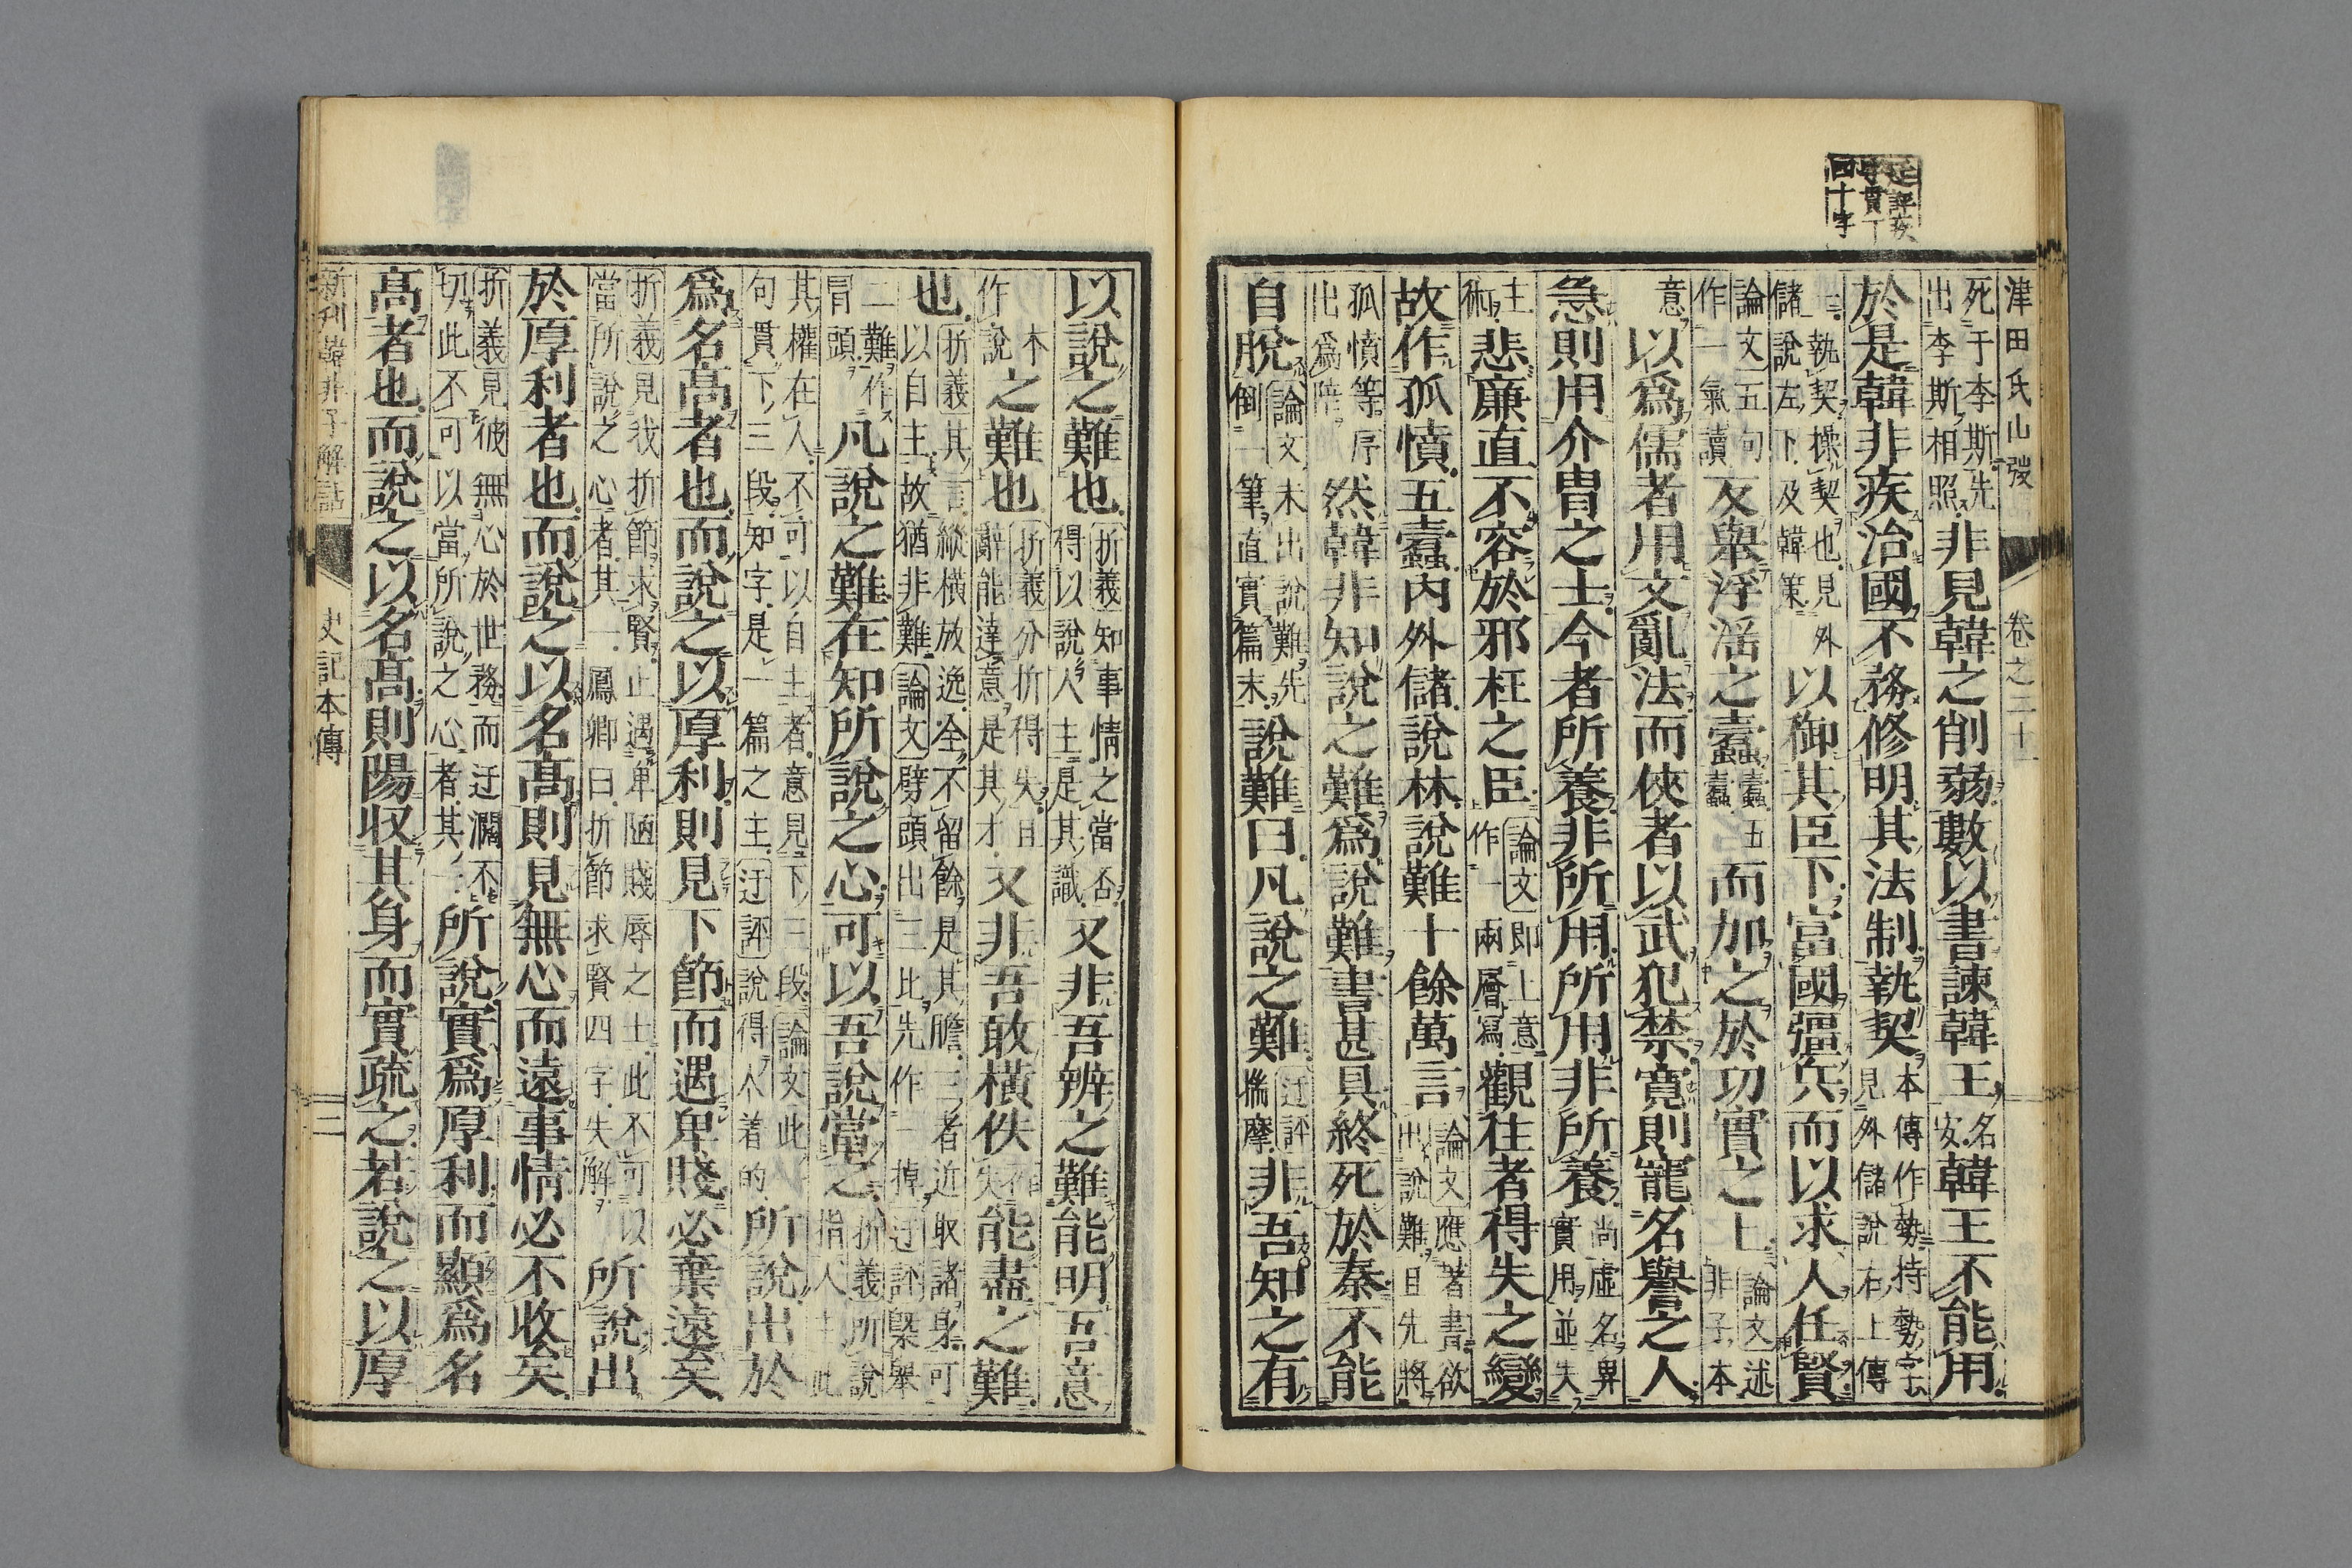 四十字
津田氏 卷之二十
死于李斯先出李斯相照非見韓之削弱數以書諫韓王名安韓王不能用
於是韓非疾治國不務修明其法制執契本傳作勢持勢字見外儲說右上傳
上執契操契也見外儲說左下及韓策以御其臣下富國彊兵而以求人任賢
論文五句作一氣讀反舉浮淫之蠹蠹五蠹而加之於功實之上論文述非子本
意以爲儒者用文亂法而俠者以武犯禁寬則寵名譽之人
急則用介冑之士今者所養非所用所用非所養尚虛名卑實用並失
主術悲廉直不容於邪枉之臣論文卽上意作一兩層寫觀往者得失之變
故作孤憤五蠹內外儲說林說難十餘萬言論文應著書欲出說難且先將
孤憤等序出爲陪然韓非知說之難爲說難書甚具終死於秦不能
自脫論文未出說難先倒一筆直實篇末說難曰凡說之難迂評揣摩非吾知之有
以說之難也折義知事情之當否得以說人主是其識又非吾辨之難能明吾意
本作說之難也折義分折得失且辭能達意是其才又非吾敢橫佚本作失能盡之難
也折義其言縱橫放逸全不留餘是其膽三者近取諸身可以自主故猶非難論文劈頭出三此先作一掉迂評槩舉
二難作冒頭凡說之難在知所說之心可以吾說當之折義所說指人主此
其權在人不可以自主者意見下三段論文此句貫下三段知字是一篇之主迂評說得人着的所說出於
爲名高者也而說之以厚利則見下節而遇卑賤必棄遠矣
折義見我折節求賢止遇卑陋賤辱之士此不可以當所說之心者其一鳳卿曰折節求賢四字失解所說出
於厚利者也而說之以名高則見無心而遠事情必不收矣
折義見彼無心於世務而迂濶不切此不可以當所說之心者其二所說實爲厚利而顯爲名
高者也而說之以名高則陽収其身而實疏之若說之以厚
新刊韓非子解詁 史記本傳 二